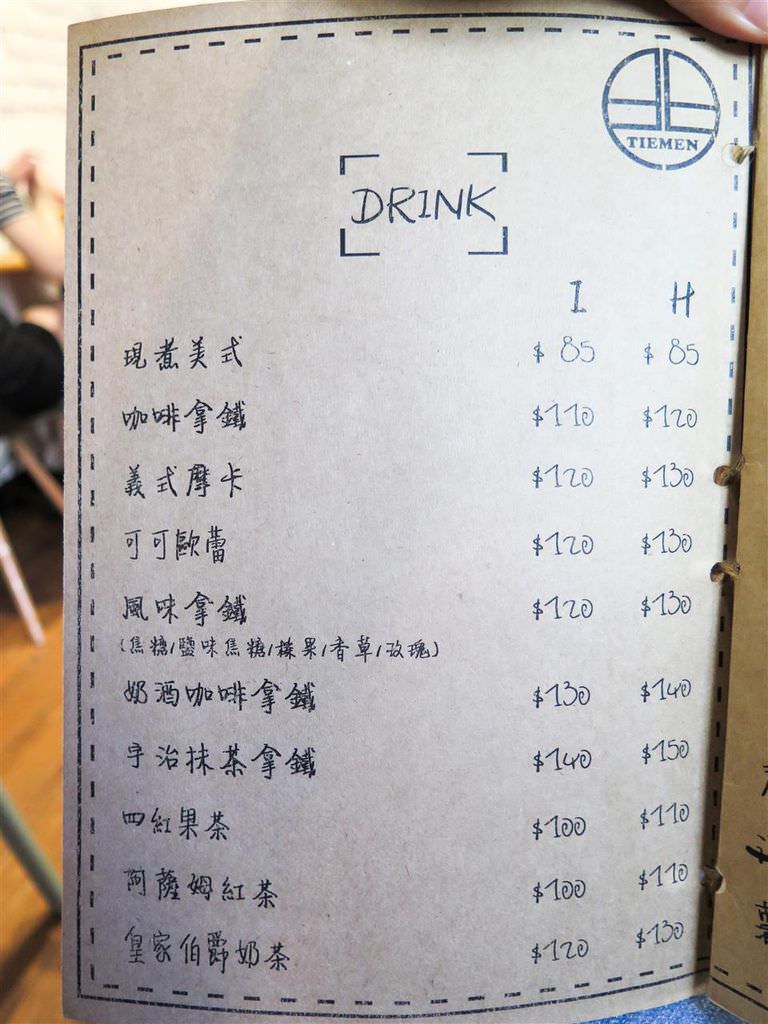 TIEMEN
DRINK
I H
現煮美式 $85 $85
咖啡拿鐵 $110 $120
義式摩卡 $120 $130
可可歐蕾 $120 $130
風味拿鐵 $120 $130
(焦糖/鹽味焦糖/榛果/香草/玫瑰)
奶酒咖啡拿鐵 $130 $140
宇治抹茶拿鐵 $140 $150
四紅果茶 $100 $110
阿薩姆紅茶 $100 $110
皇家伯爵奶茶 $120 $130